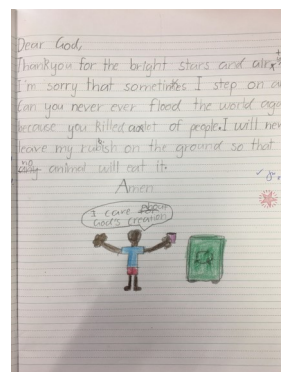 Dear God,
Thankyou for the bright stars and air.
I'm sorry that sometimes I step on a
Can you never ever flood the world aga
because you killed alot of people. I will nev
leave my rubish on the ground so that
no animal will eat it.
Amen
I care
God's creation